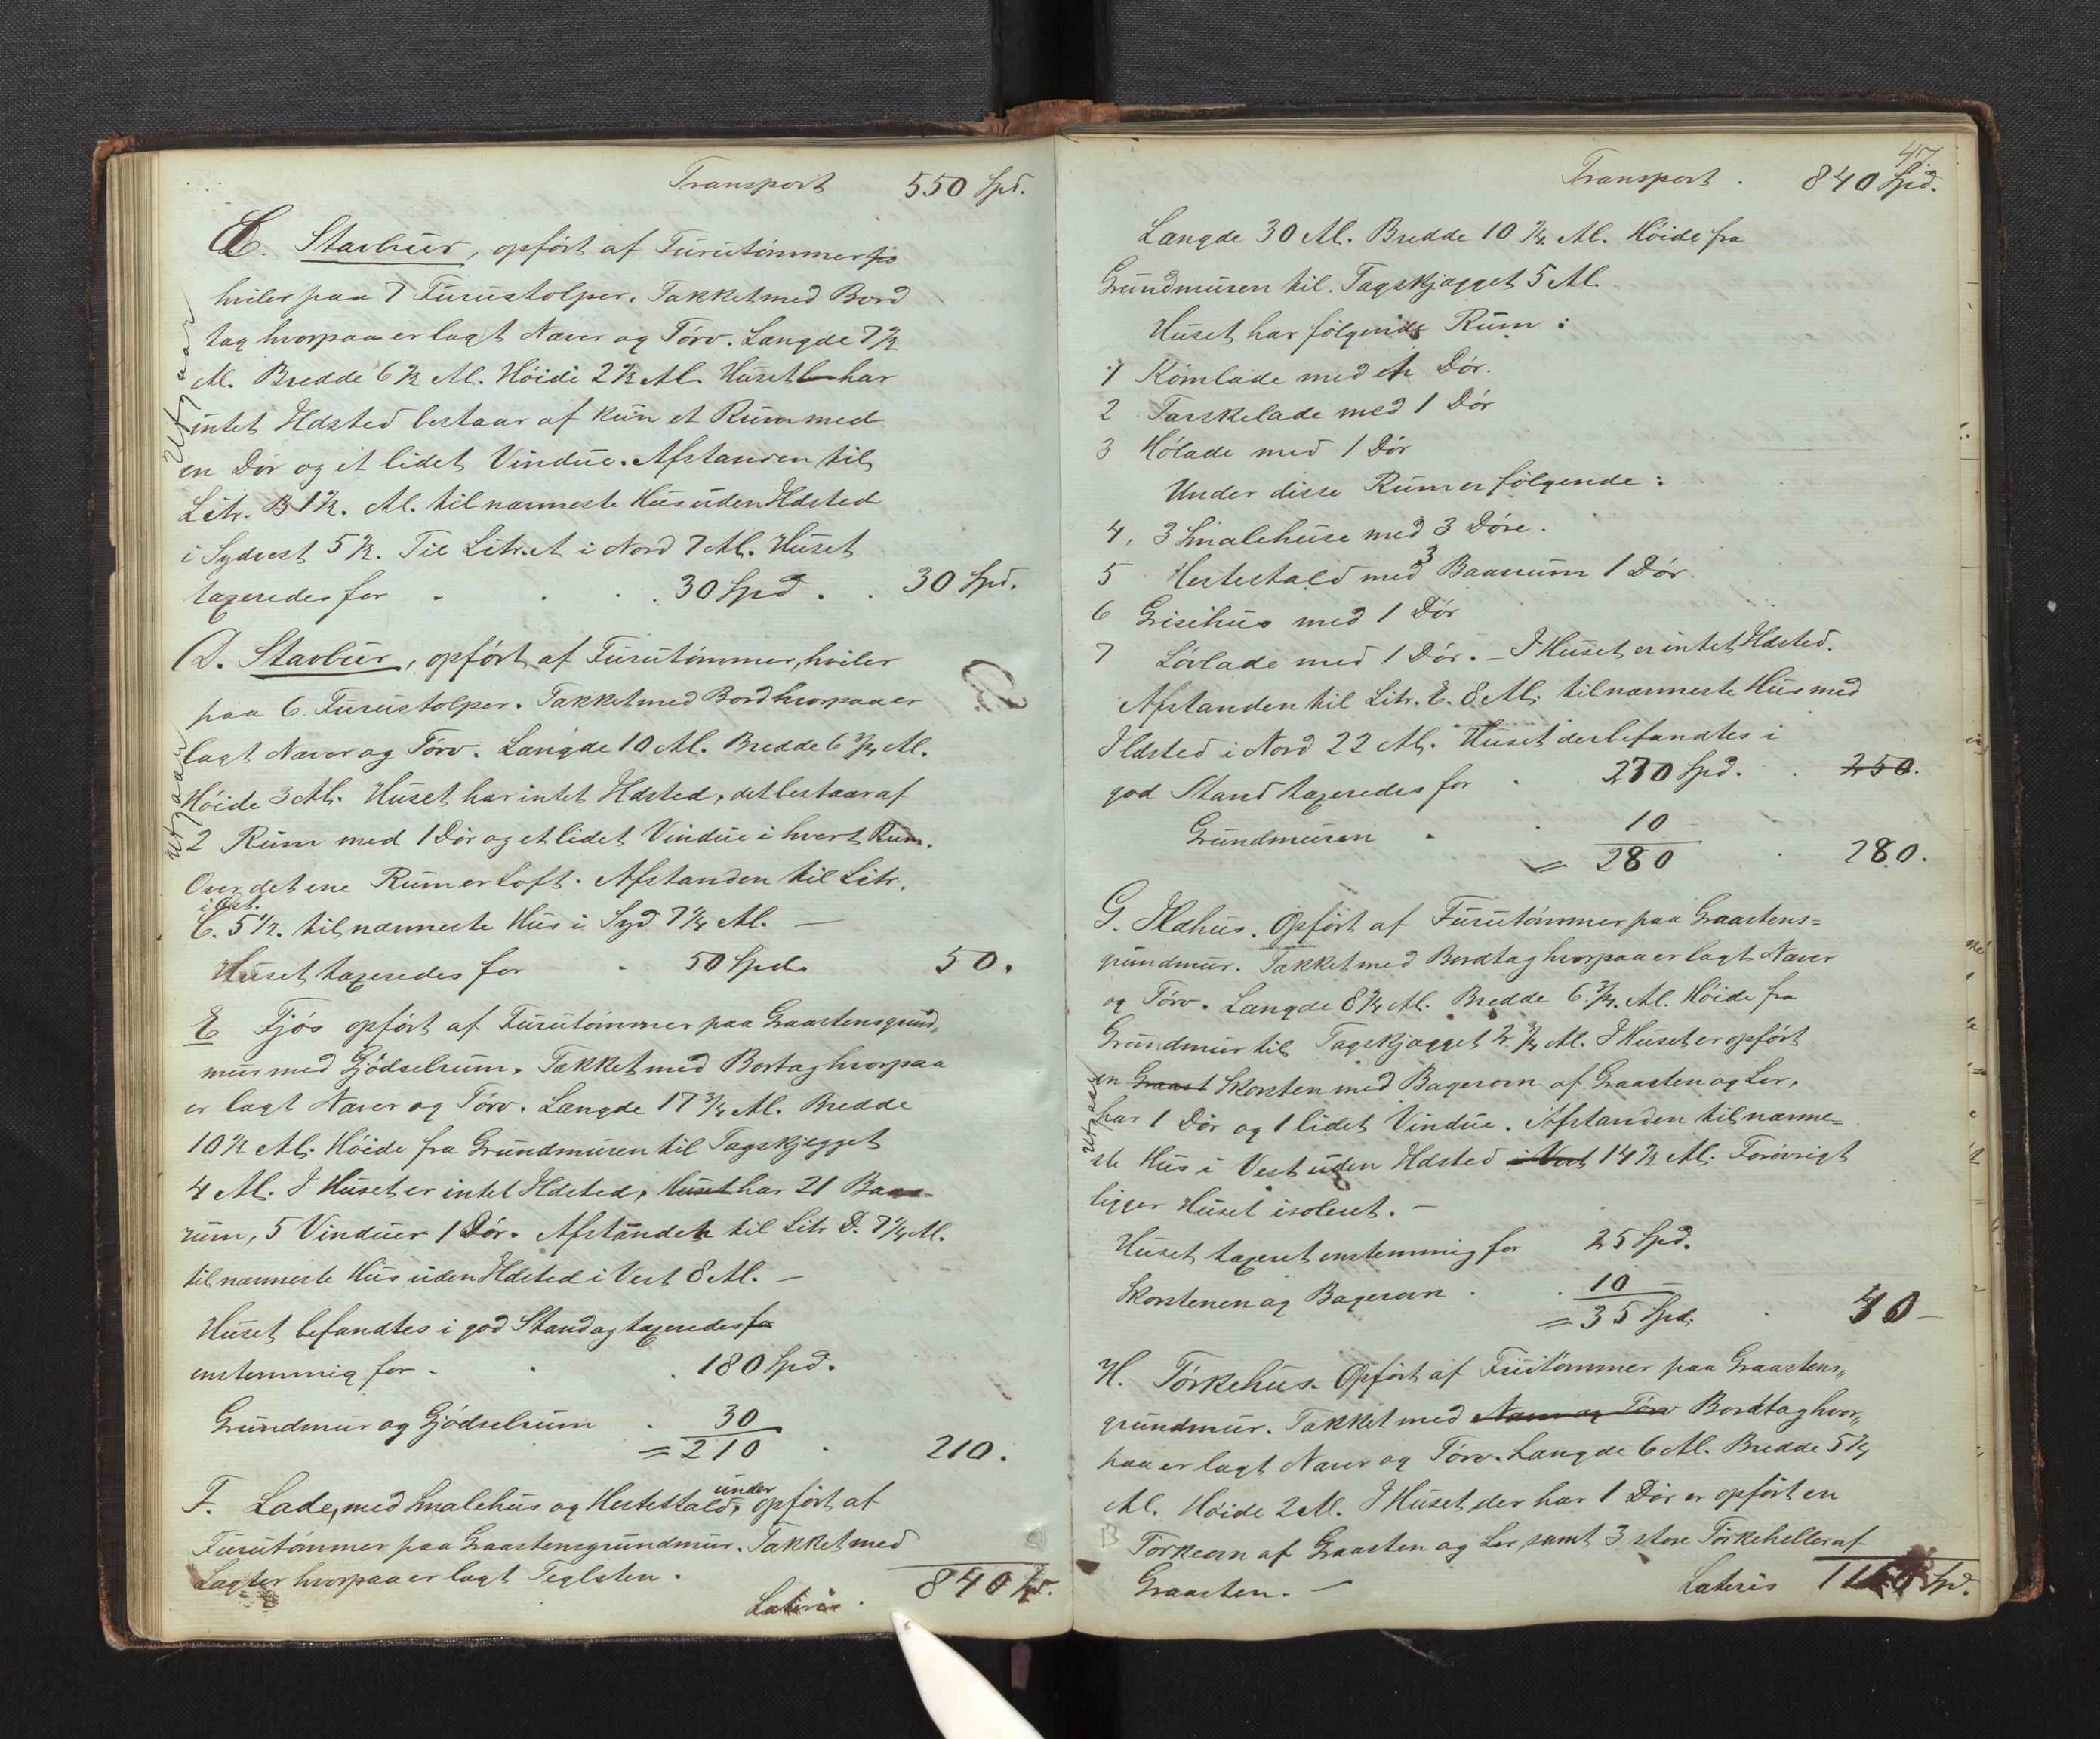 Transport 550 Spd.
C. Stavbur, opført af Furutømmer
hviler paa 7 Furustolper. Takket med Bord
tag hvorpaa er lagt Næver og Törv. Længde 7 1/2
Al. Bredde 6 1/2 Al. Höide 2 1/2 Al. Huset har
intet Ildsted bestaar af kun et Rum med
en Dør og et lidet Vindue. Afstanden til
Litr. B 1 1/2. Al. til nærmeste Hus uden Ildsted
i Sydvest 5 1/2. Til Litr. A i Nord 7 Al. Huset
taxeredes for . . . 30 Spd . . 30 Spd.
Utgaar
D. Stavbur, opført af Furutømmer, hviler
paa 6 Furustolper. Takket med Bord hvorpaa er
lagt Næver og Törv. Længde 10 Al. Bredde 6 3/4 Al.
Höide 3 Al. Huset har intet Ildsted, det bestaar af
2 Rum med 1 Dør og et lidet Vindue i hvert Rum.
Over det ene Rum er Loft. Afstanden til Litr.
i Øst.
C. 5 1/2. til nærmeste Hus i Syd 7 1/4 Al. —
Huset taxeredes for . 50 Spd. 50.
Utgaar
E Fjös opført af Furutømmer paa Graastensgrund„
mur med Gjödselrum. Takket med Bortag hvorpaa
er lagt Næver og Törv. Længde 17 3/4 Al. Bredde
10 1/2 Al. Höide fra Grundmuren til Tagskjegget
4 Al. I Huset er intet Ildsted, Huset har 21 Baas-
rum, 5 Vinduer 1 Dør. Afstanden til Litr D. 7 1/4 Al.
til nærmeste Hus uden Ildsted i Vest 8 Al. —
Huset befandtes i god Stand og taxeredes fo
enstemmig for . . . 180 Spd.
Grundmur og Gjödselrum . 30
= 210 . 210.
F. Lade, med Smalehus og Hestestald under, opført af
Furutømmer paa Graastensgrundmur. Takket med
Lagter hvorpaa er lagt Teglsten.
Lateris . 840 Spd.
47.
Transport . 840 Spd.
Længde 30 Al. Bredde 10 1/4 Al. Höide fra
Grundmuren til Tagskjægget 5 Al.
Huset har følgende Rum :
1 Kornlade med en Dör.
2 Tærskelade med 1 Dör
3 Hölade med 1 Dör
Under disse Rum er følgende :
4, 3 Smalehuse med 3 Döre.
5 Hestestald med 3 Baasrum 1 Dör
6 Grisehus med 1 Dör
7 Lövlade med 1 Dör. — I Huset er intet Ildsted.
Afstanden til Litr. E. 8 Al. til nærmeste Hus med
Ildsted i Nord 22 Al. Huset der befandtes i
god Stand taxeredes for . 270 Spd. . 250.
Grundmuren . . 10
= 280 . 280.
G. Ildhus. Opført af Furutømmer paa Graastens=
grundmur. Takket med Bordtag hvorpaa er lagt Næver
og Törv. Længde 8 3/4 Al. Bredde 6 3/4. Al. Höide fra
Grundmur til Tagskjægget 2 3/4 Al. I Huset er opført
en Graast Skorsten med Bagerovn af Graasten og Ler,
har 1 Dör og 1 lidet Vindue. Afstanden til nærme=
ste Hus i Vest uden Ildsted i Vest 14 1/2 Al. Forövrigt
ligger Huset isoleret. —
Utgaar
Huset taxeret enstemmig for 25 Spd.
Skorstenen og Bagerovn . . 10
= 35 Spd. . 40 —
H. Törkehus. Opført af Furtømmer paa Graastens„
grundmur. Takket med Næver og Törv Bordtag hvor„
paa er lagt Næver og Törv. Længde 6 Al. Bredde 5 1/4
Al. Höide 2 Al. I Huset, der har 1 Dör er opført en
Törkeovn af Graasten og Ler, samt 3 store Törkeheller af
Graasten. —
Lateris Spd.